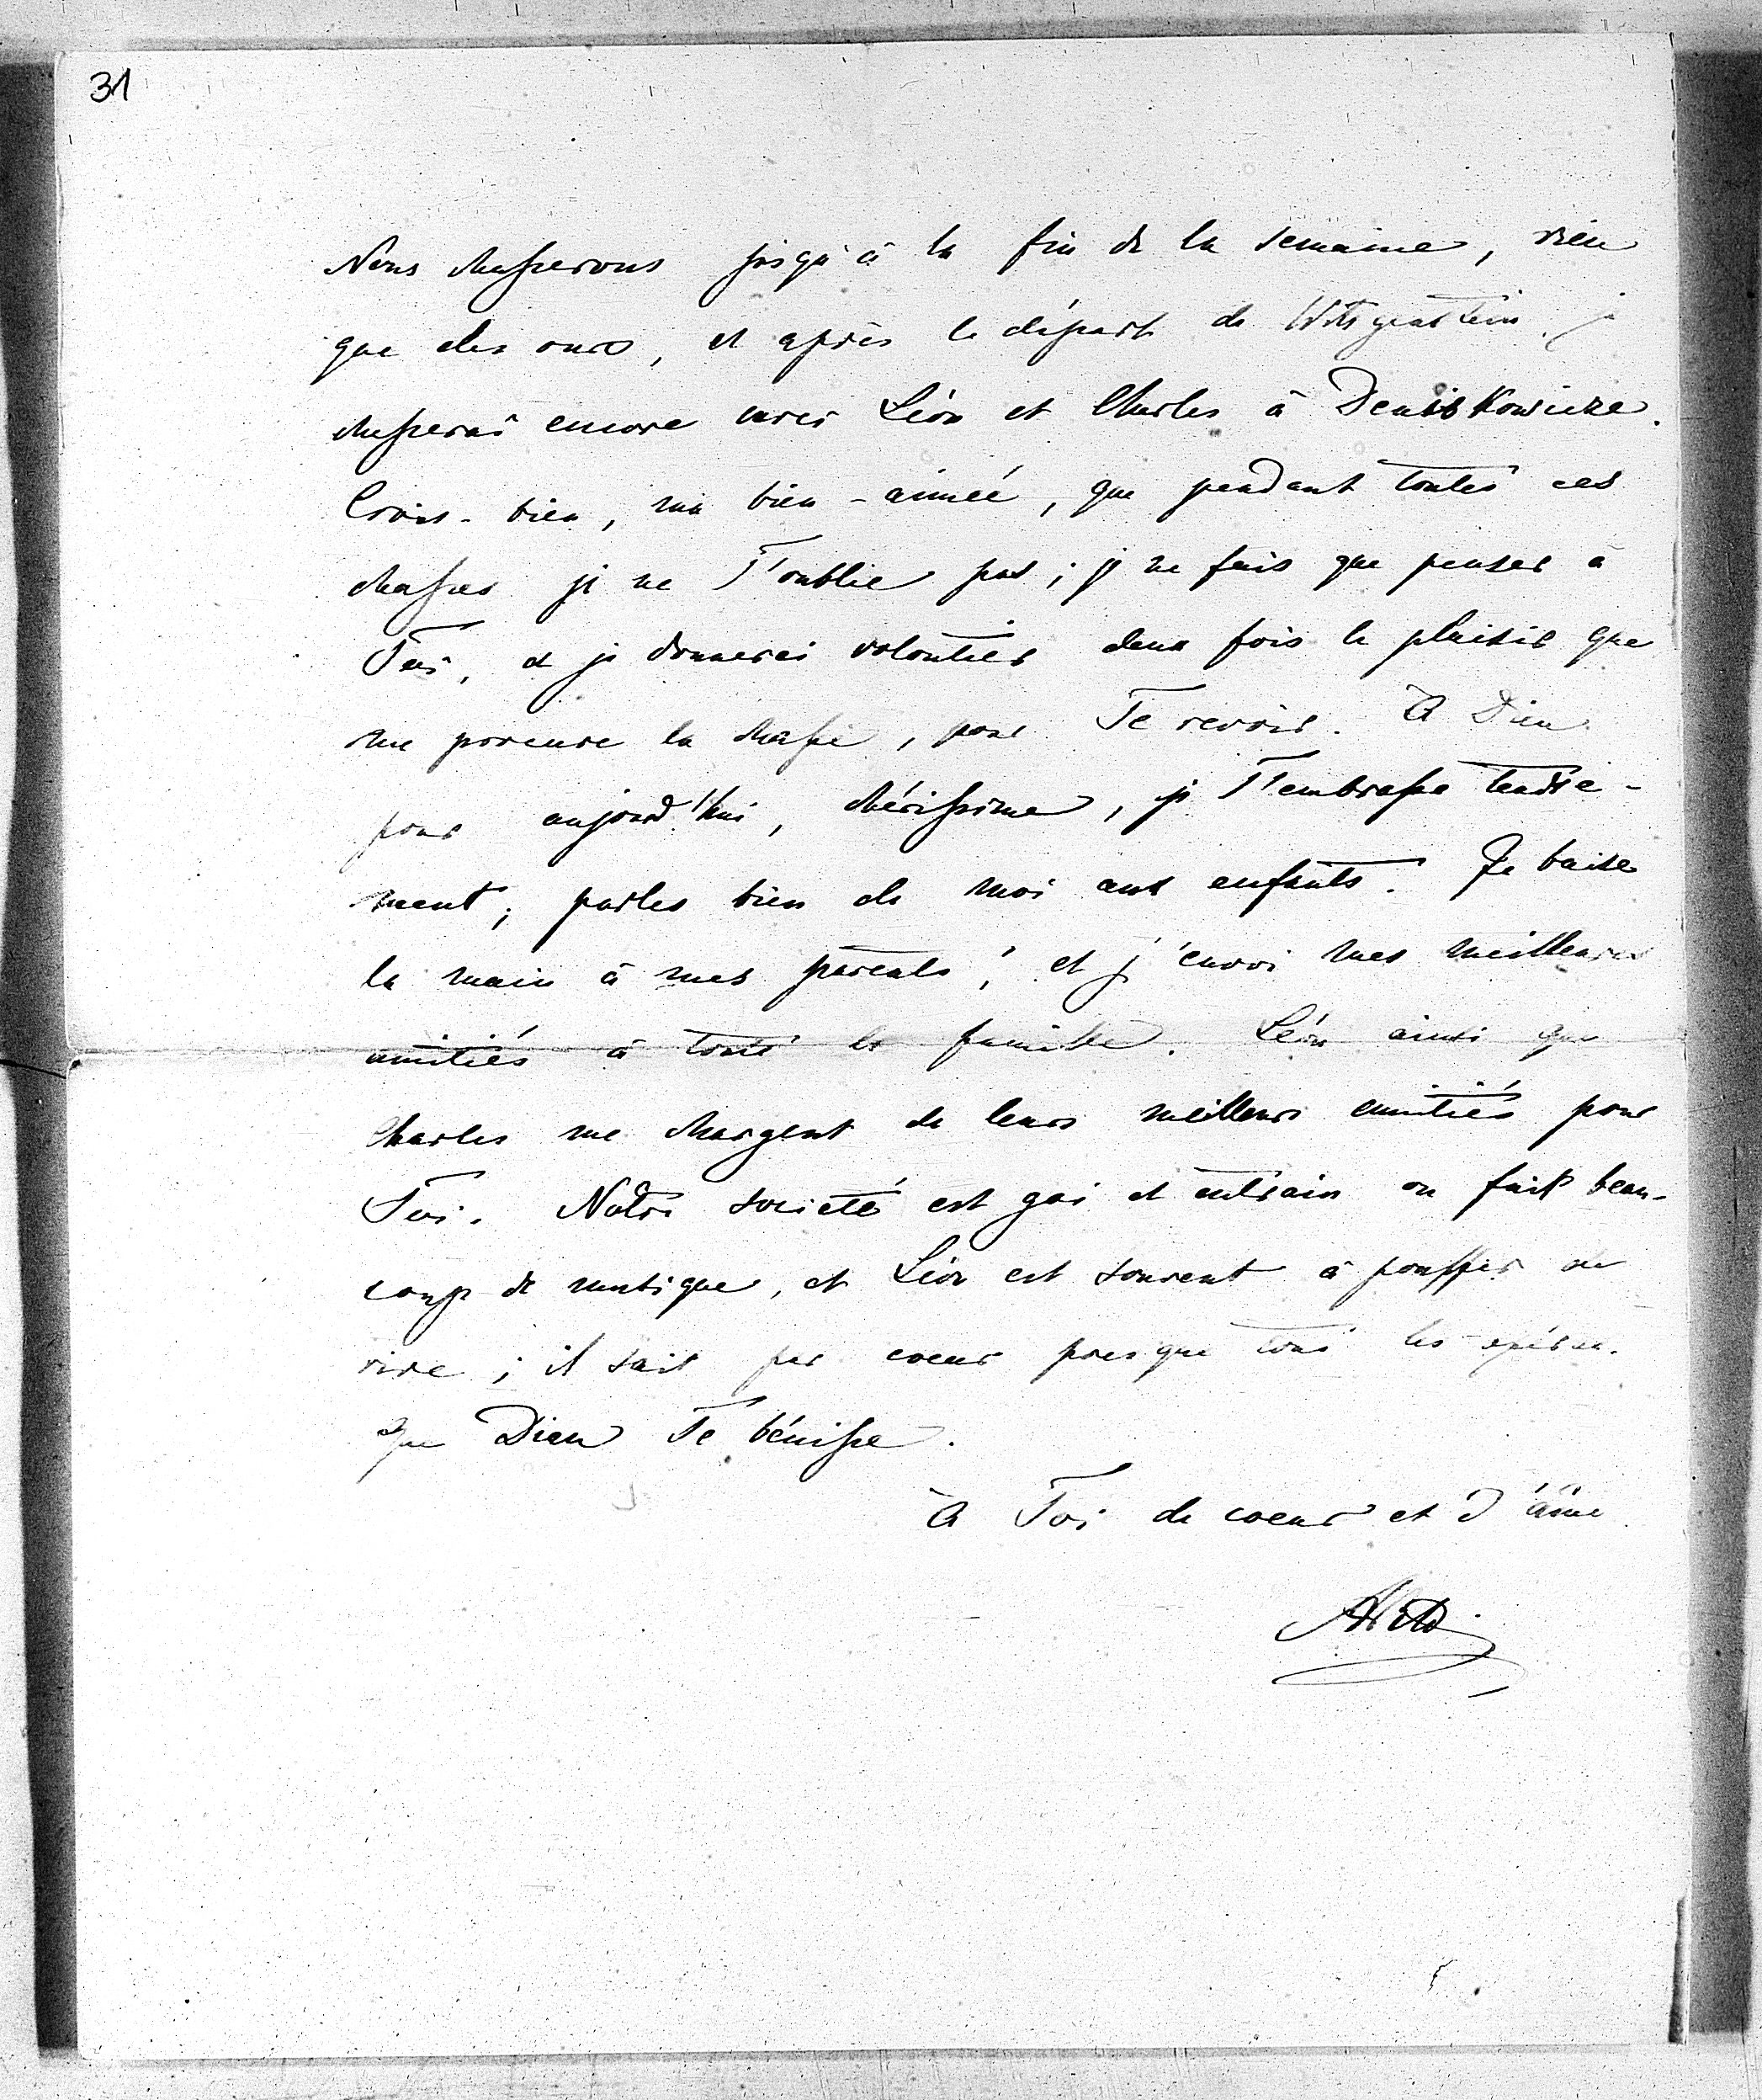 31
Nous chasserons jusqu'à la fin de la semaine, rien
que des ours, et après le départ de Wittgenstein je
chasserai encore avec Léon et Charles à Deniskowicze.
Crois-bien, ma bien-aimée, que pendant toutes ces
chasses je ne T'oublie pas; je ne fais que penser à
Toi, et je donnerai volontier deux fois le plaisir que
me procure la chasse, pour Te revoir. A Dieu
pour aujourd'hui, chérissime, je T'embrasse tendre-
ment; parles bien de moi aux enfants. Je baise
la main à mes parents, et j'envoi mes meilleures
amitiés à toute la famille. Léon ainsi que
Charles me chargent de leurs meilleurs amitiés pour
Toi. Notre société est gai et entrain on fait beau-
coup de musique, et Léon est souvent à pouffer de
rire; il sait par coeur presque tous les opéras.
Que Dieu Te bénisse.
À Toi de coeur et d'âme